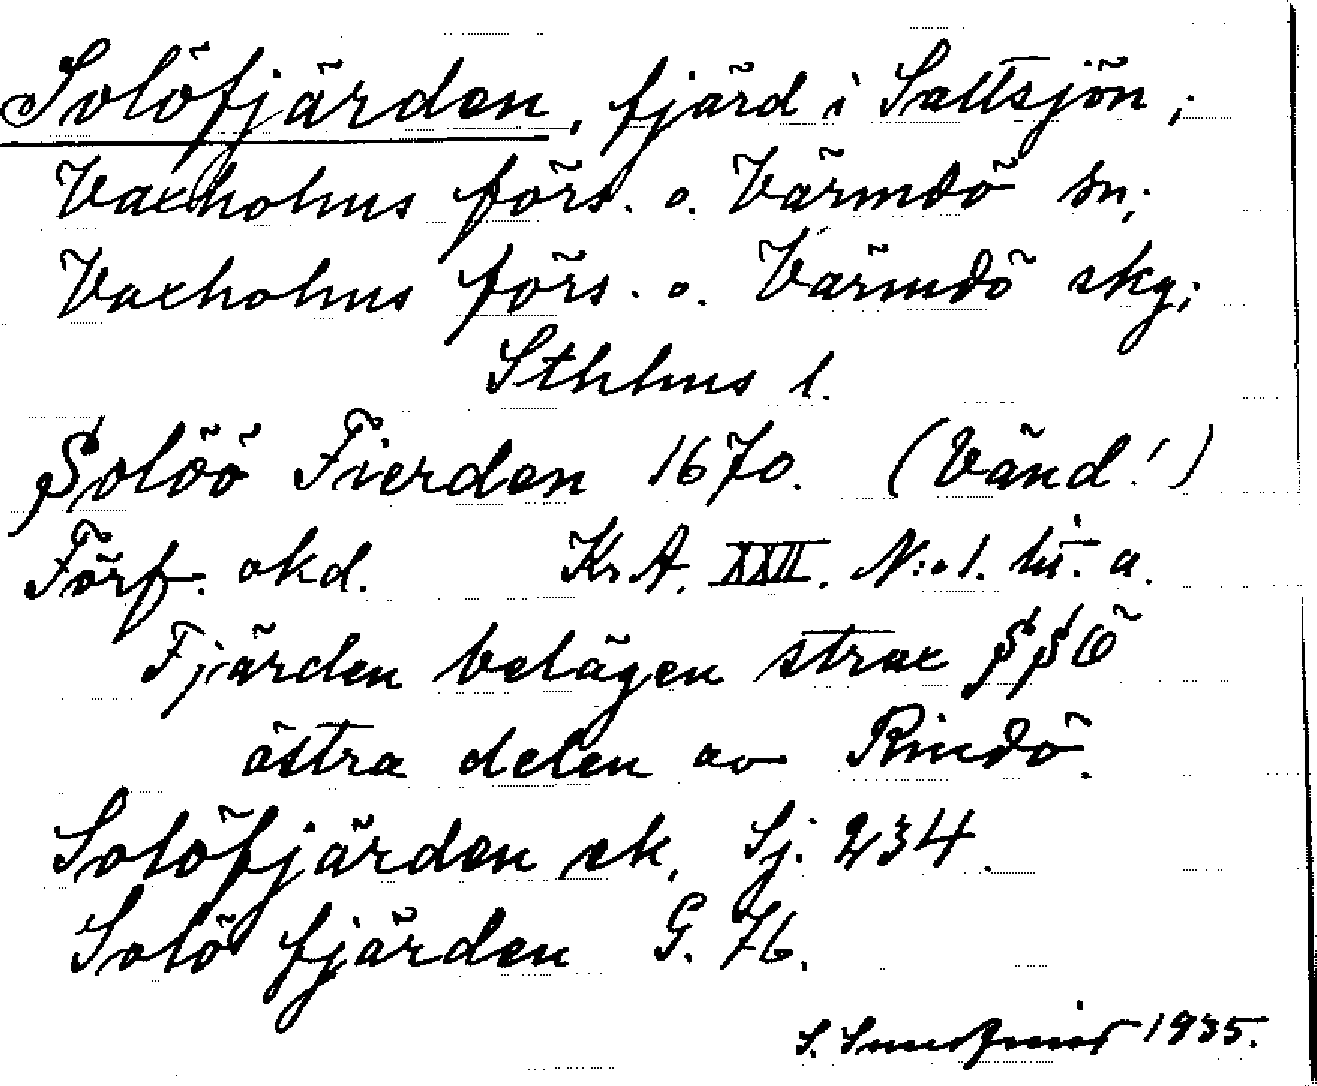 Solöfjärden, fjärd i Saltsjön;
Vaxholms förs. o. Värmdö sn;
Vaxholms förs. o. Värmdö skg;
Sthlms l.
Solöö Fierden 1670. (Vänd!)
Förf. okd. Kr. A. XXII. N:o 1. lit. a.
Fjärden belägen strax SSÖ
östra delen av Rindö.
Solöfjärden ek. Sj. 234.
Solö fjärden G. 76.
S. 1935.